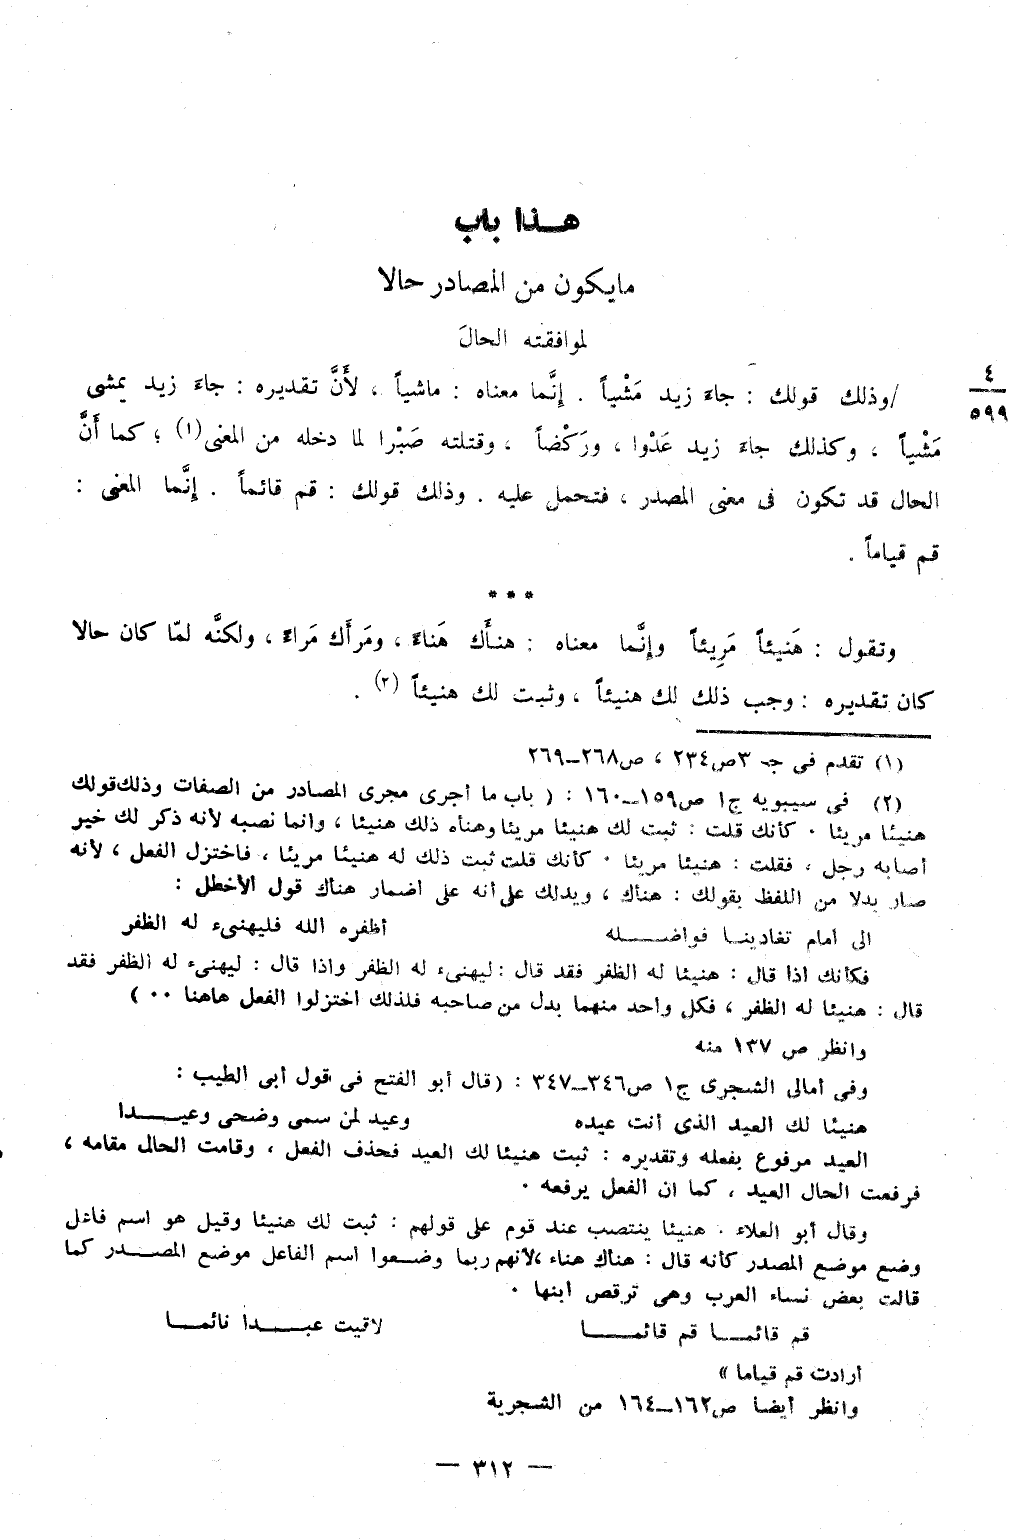 هـــذا باب
مايكون من المصادر حالا
لموافقته الحالَ
/وذلك قولك : جاءَ زيد مَشْياً . إِنَّما معناه : ماشياً ، لأَنَّ تقديره : جاءَ زيد يمشى
٤
٥٩٩
مَشْياً ، وكذلك جاءَ زيد عَدْوا ، ورَكْضاً ، وقتلته صَبْرا لما دخله من المعنى(١) ؛ كما أَنَّ
الحال قد تكون فى معنى المصدر ، فتحمل عليه . وذلك قولك : قم قائماً . إِنَّما المعنى :
قم قياماً .
* * *
وتقول : هَنيئاً مَرِيئاً وإِنَّما معناه : هنأَك هَناءً ، ومَرأَك مَراءً ، ولكنَّه لمّا كان حالا
كان تقديره : وجب ذلك لك هنيئاً ، وثبت لك هنيئاً (٢) .
(١) تقدم فى جـ ٣ص٢٣٤ ، ص٢٦٨ــ٢٦٩
(٢) فى سيبويه ج١ ص١٥٩ــ١٦٠ : ( باب ما أجرى مجرى المصادر من الصفات وذلك قولك
هنيئا مريئا ٠ كأنك قلت : ثبت لك هنيئا مريئا وهناه ذلك هنيئا ، وانما نصبه لأنه ذكر لك خير
أصابه رجل ، فقلت : هنيئا مريئا ٠ كأنك قلت ثبت ذلك له هنيئا مريئا ، فاختزل الفعل ، لأنه
صار بدلا من اللفظ بقولك : هنأك ، ويدلك على أنه على اضمار هنأك قول الأخطل :
الى امام تغادينــا فواضــــله أظفره الله فليهنىء له الظفر
فكأنك اذا قال : هنيئا له الظفر فقد قال : ليهنىء له الظفر واذا قال : ليهنىء له الظفر فقد
قال : هنيئا له الظفر ، فكل واحد منهما بدل من صاحبه فلذلك اختزلوا الفعل هاهنا ٠٠ )
وانظر ص ١٣٧ منه
وفى أمالى الشجرى ج١ ص٣٤٦ــ٣٤٧ : (قال أبو الفتح فى قول أبى الطيب :
هنيئا لك العيد الذى أنت عيده وعيد لمن سمى وضحى وعيـــــدا
العيد مرفوع بفعله وتقديره : ثبت هنيئا لك العيد فحذف الفعل ، وقامت الحال مقامه ،
فرفعت الحال العيد ، كما ان الفعل يرفعه ٠
وقال أبو العلاء ٠ هنيئا ينتصب عند قوم على قولهم : ثبت لك هنيئا وقيل هو اسم فاعل
وضع موضع المصدر كأنه قال : هناك هناء ،لأنهم ربما وضــعوا اسم الفاعل موضع المصــــدر كما
قالت بعض نساء العرب وهى ترقص ابنها ٠
قم قائمـــا قم قائمـــــا لاقيت عبـــــدا نائمـــا
أرادت قم قياما »
وانظر أيضا ص١٦٢ــ١٦٤ من الشجرية
— ٣١٢ —